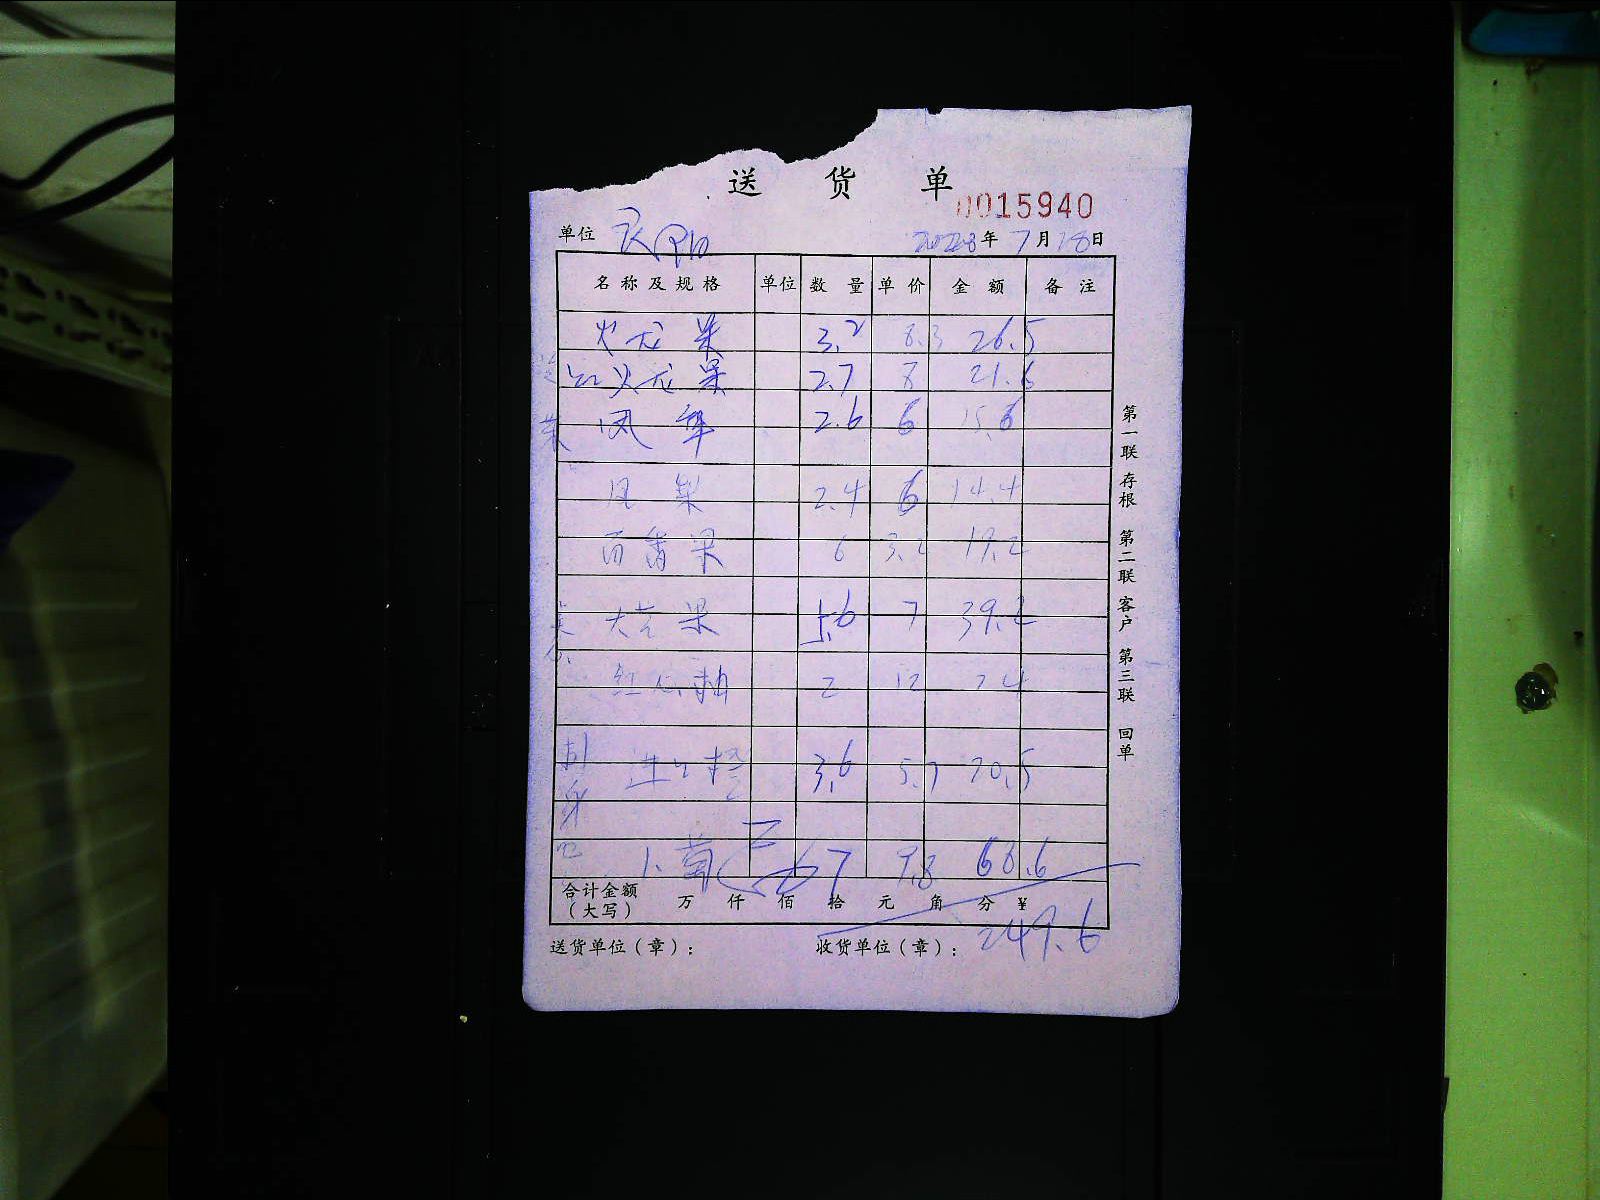 送 货 单
0015940
单位 年 7 月 18 日
名称及规格 单位 数量 单价 金额 备注
火龙果 3.2 8.3 26.5
红火龙果 2.7 8 21.6
凤梨 2.6 6 15.6
凤梨 2.4 6 14.4
百香果 6 3.2 19.2
大芒果 5.6 7 39.2
红心柚 2 12 24
进口橙 3.6 5.7 20.5
7 9.8 68.6
合计金额（大写） 万 仟 佰 拾 元 角 分 ¥ 249.6
送货单位（章）： 收货单位（章）：
第一联 存根 第二联 客户 第三联 回单